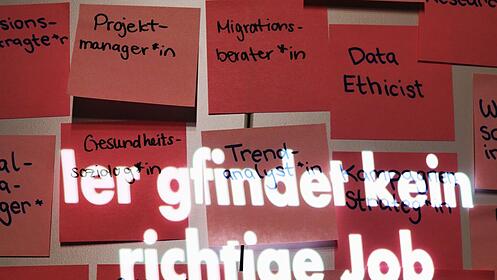 sions-
ragte*r
Projekt-
manager*in
Migrations-
berater*in
Data
Ethicist
Gesundheits-
soziolog*in
Trend-
analyst*in
Kampagnen
Strateg*in
al-
a-
ger*
ler gfindet kein
richtige Job